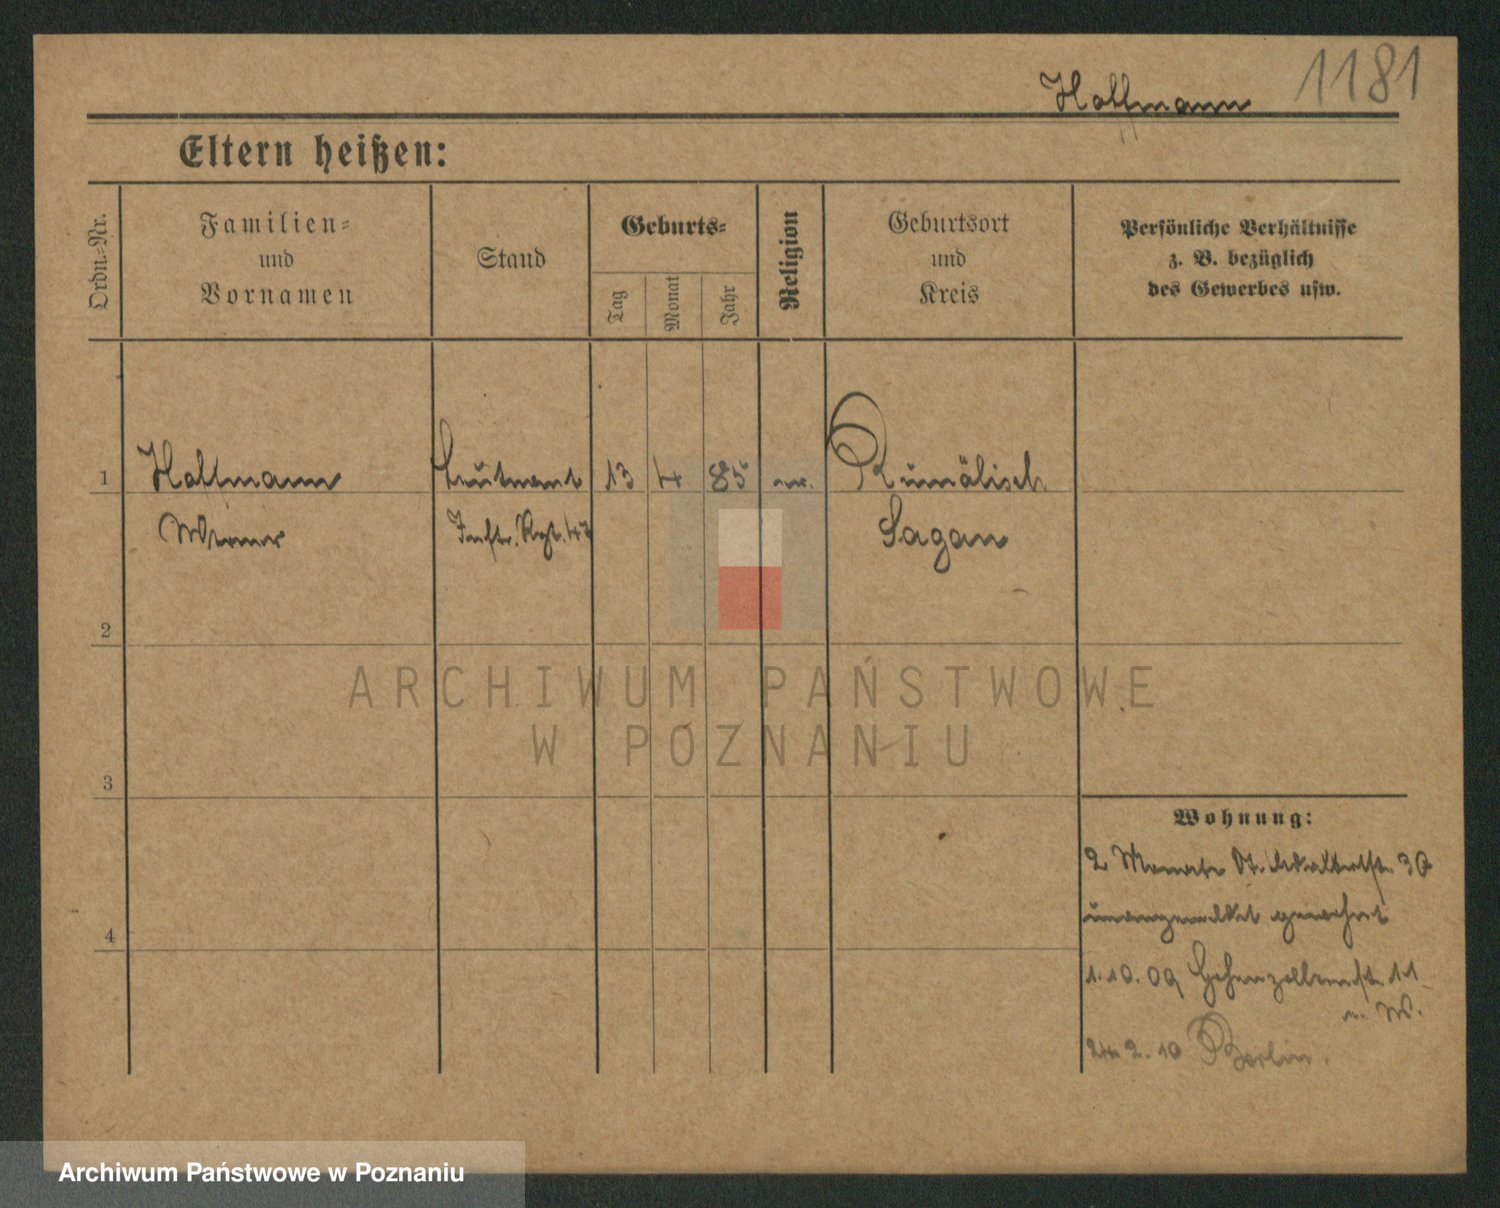 1181
Hoffmann
Eltern heißen:
Ordn.-Nr.
Familien-
und
Vornamen
Stand
Geburts-
Tag
Monat
Jahr
Religion
Geburtsort
und
Kreis
Persönliche Verhältnisse
z. B. bezüglich
des Gewerbes usw.
1 Hoffmann Leutnant 13 4 85 ev.
Werner Inftr. Rgt. 47
Sagan
2
3
4
Wohnung:
2 Monate St. 30
gewohnt
1.10.09 Hohenzollernstr. 11
n. W.
24.2.10 Berlin.
ARCHIWUM PAŃSTWOWE
W POZNANIU
Archiwum Państwowe w Poznaniu